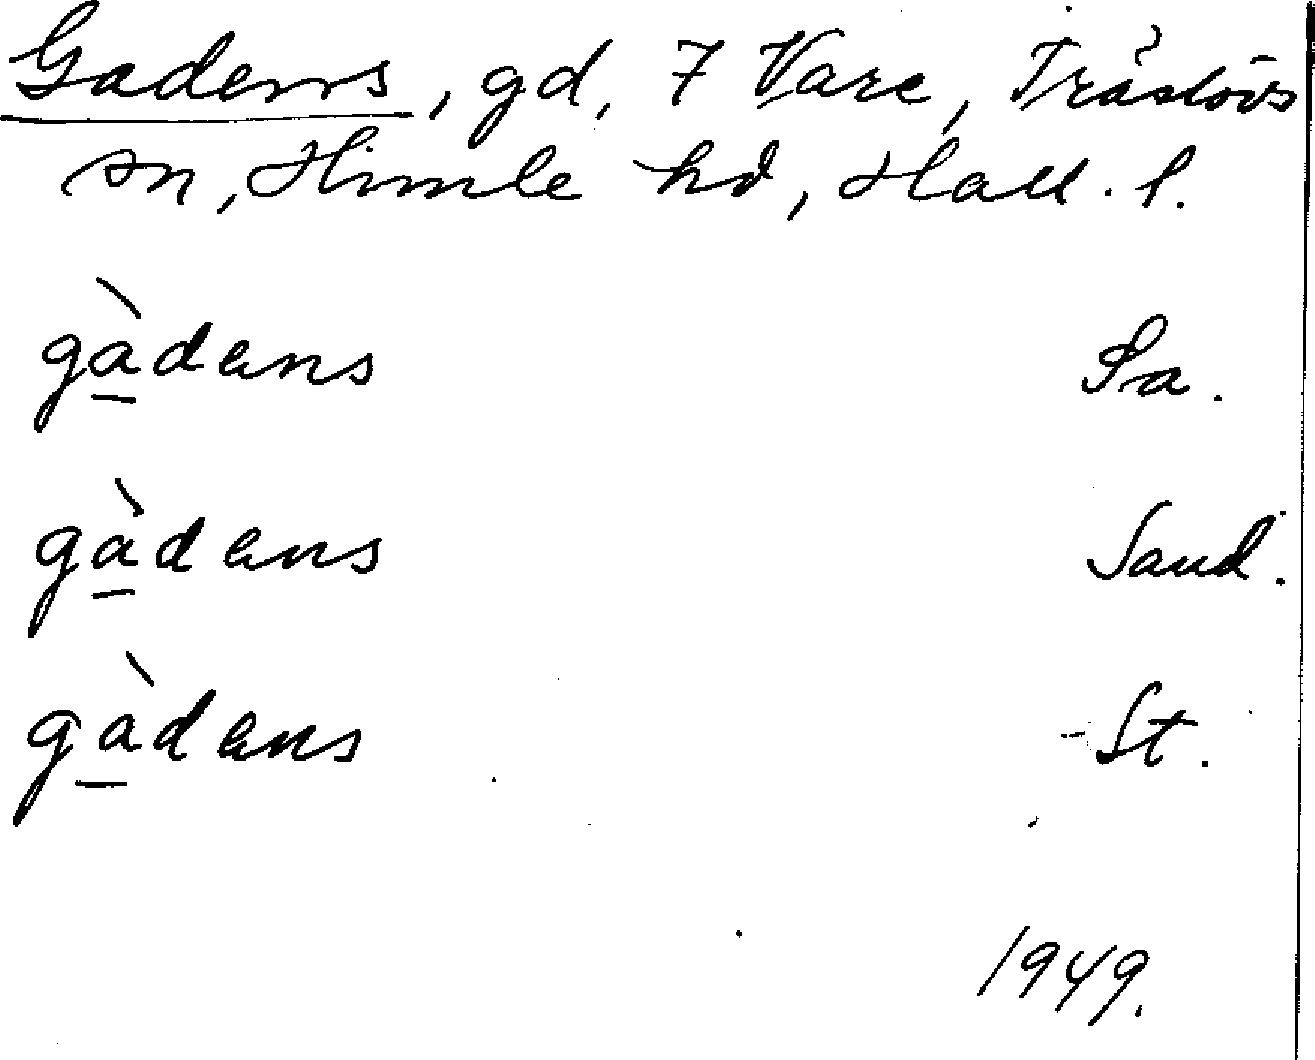 Gadens, gd, 7 Vare, Träslövs
sn, Himle hd, Hall. l.
gà̱dens Pa.
gà̱dens Sand.
gà̱dens St.
1949.